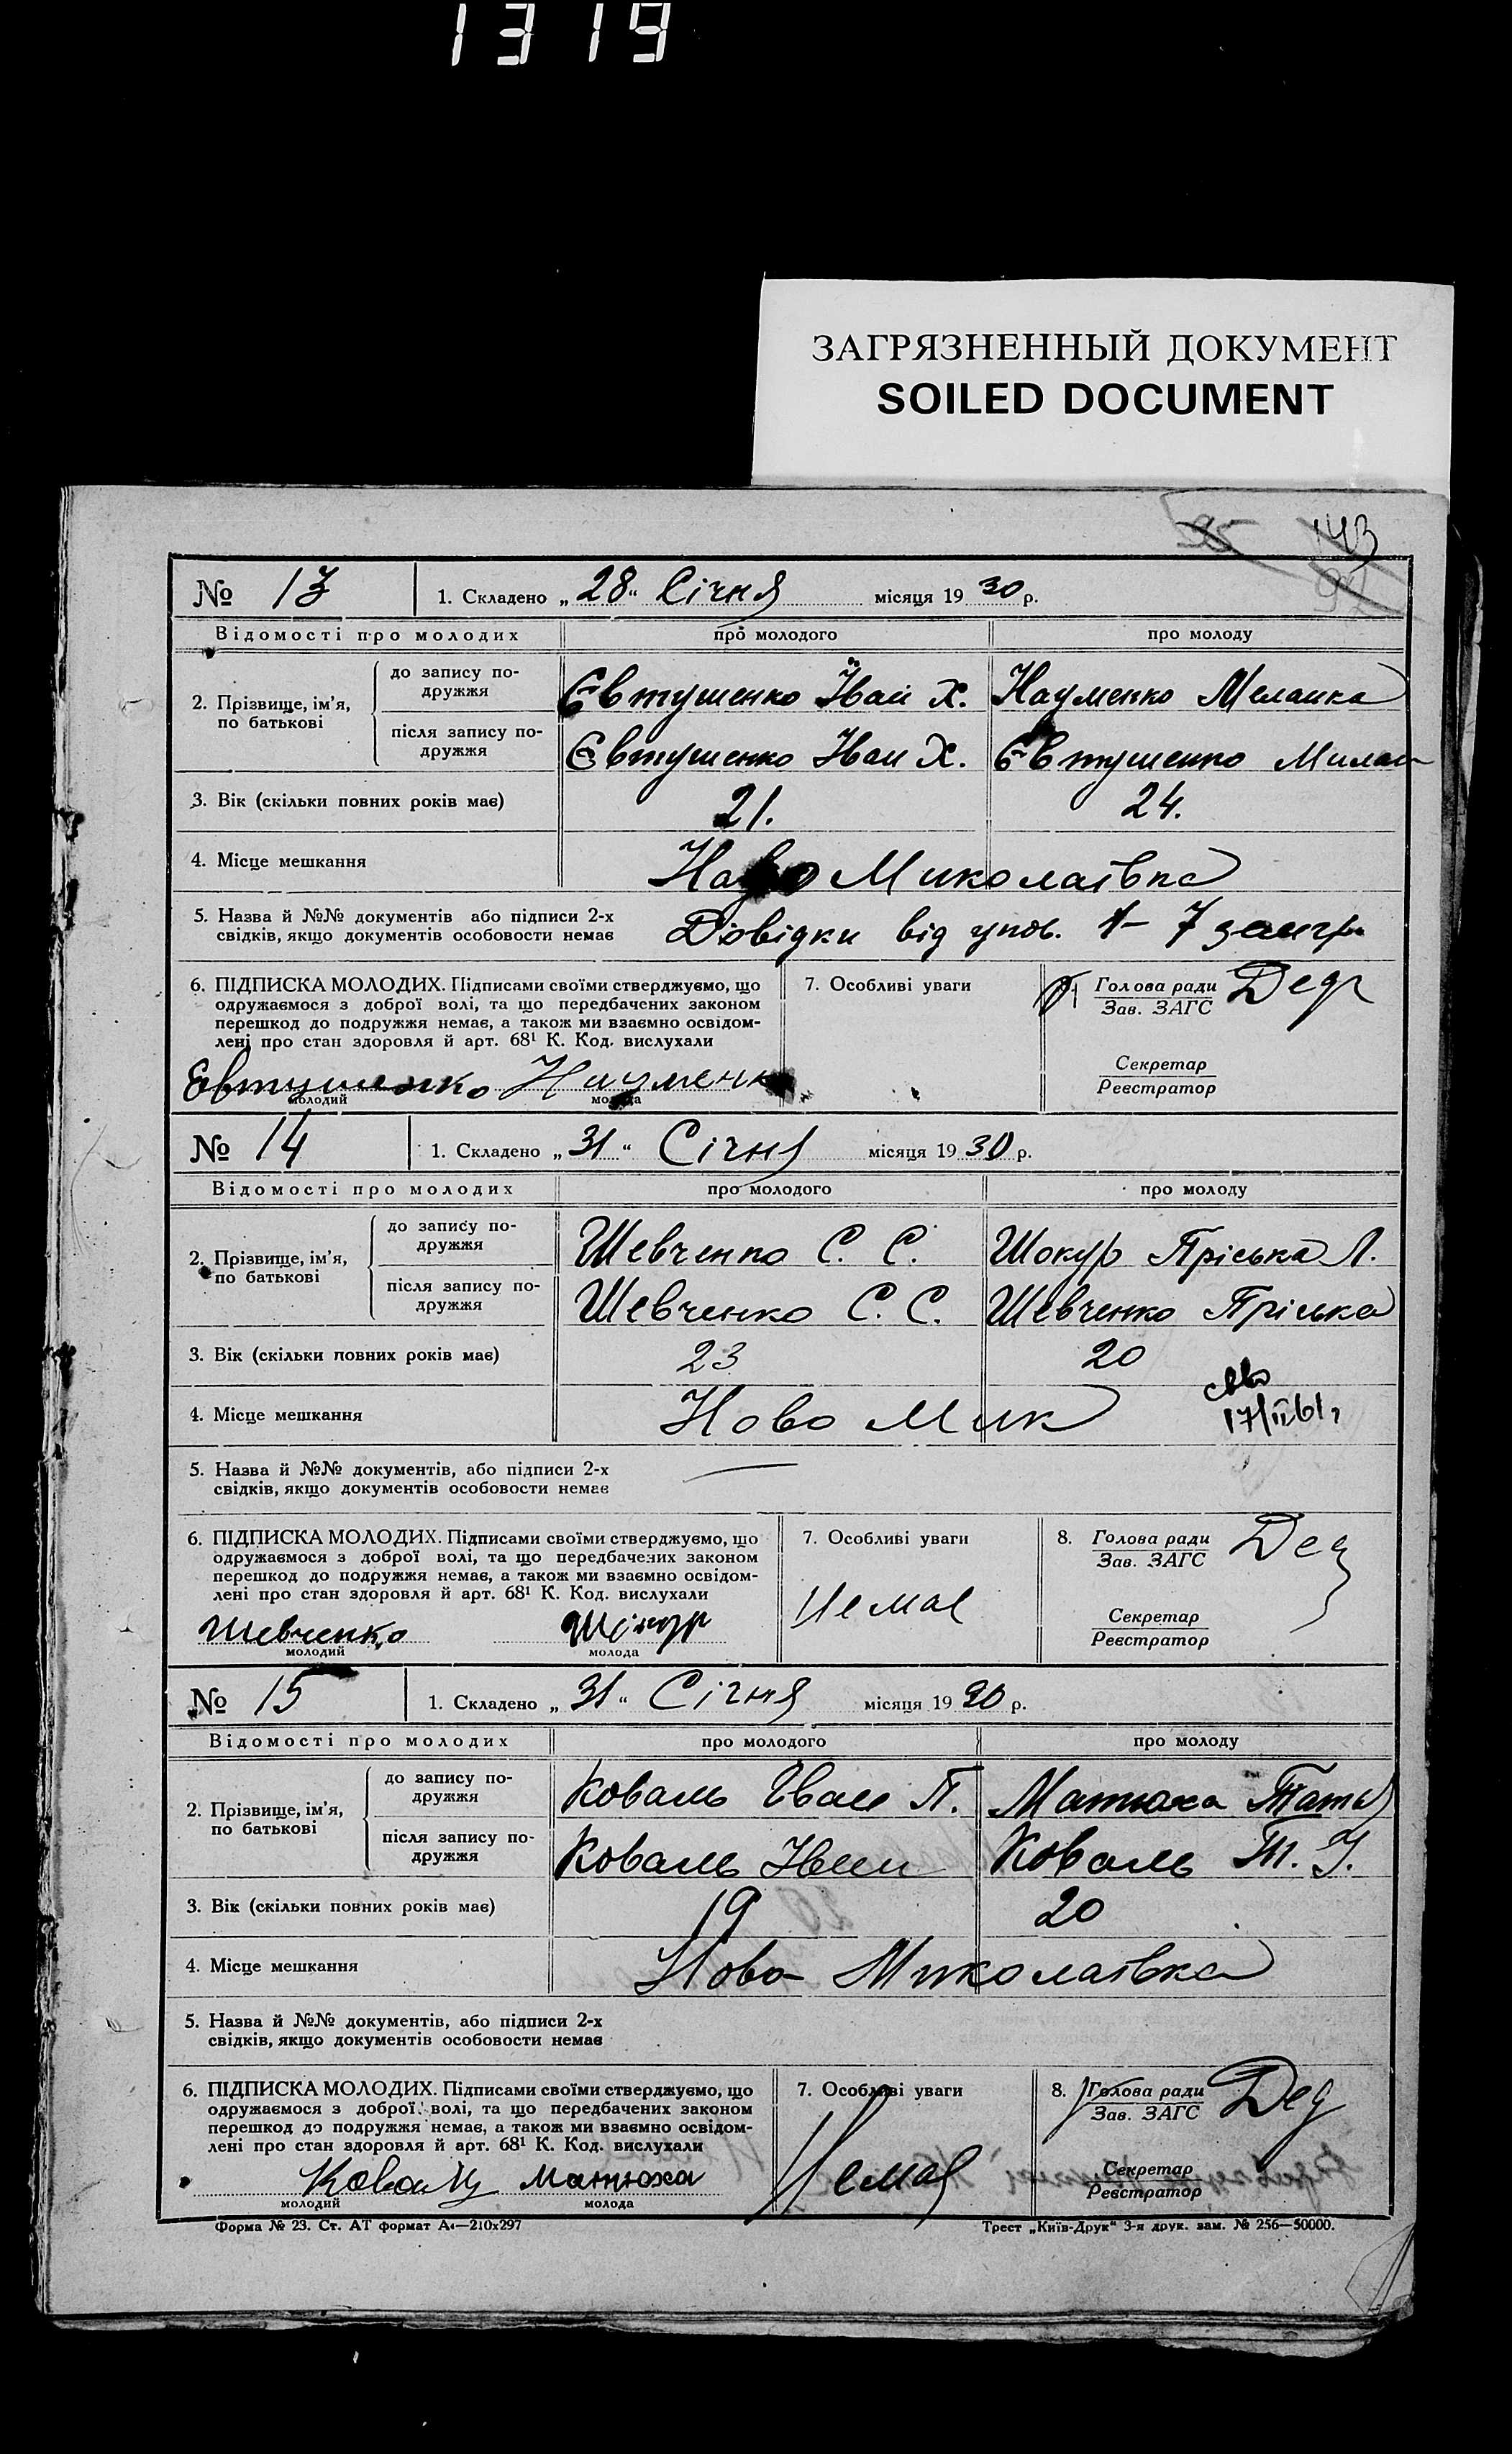 1319
ЗАГРЯЗНЕННЫЙ ДОКУМЕНТ
SOILED DOCUMENT
143
№ 13 1. Складено „28“ Січня місяця 1930 р.
Відомості про молодих про молодого про молоду
2. Прізвище, ім'я, по батькові
до запису подружжя Євтушенко Іван Х. Науменко Меланка
після запису подружжя Євтушенко Іван Х. Євтушенко Милан
3. Вік (скільки повних років має) 21. 24.
4. Місце мешкання Ново Миколаївка
5. Назва й №№ документів або підписи 2-х
свідків, якщо документів особовости немає Довідки від упов. 1– 7
6. ПІДПИСКА МОЛОДИХ. Підписами своїми стверджуємо, що
одружаємося з доброї волі, та що передбачених законом
перешкод до подружжя немає, а також ми взаємно освідом-
лені про стан здоровля й арт. 68¹ К. Код. вислухали
Євтушенко Науменк
молодий молода
7. Особливі уваги
Голова ради
Зав. ЗАГС
Секретар
Реєстратор
№ 14 1. Складено „31“ Січня місяця 1930 р.
Відомості про молодих про молодого про молоду
2. Прізвище, ім'я, по батькові
до запису подружжя Шевченко С. С. Шокур Пріська Л.
після запису подружжя Шевченко С. С. Шевченко Пріська
3. Вік (скільки повних років має) 23 20
4. Місце мешкання Ново Мик
17/II 61
5. Назва й №№ документів, або підписи 2-х
свідків, якщо документів особовости немає —
6. ПІДПИСКА МОЛОДИХ. Підписами своїми стверджуємо, що
одружаємося з доброї волі, та що передбачених законом
перешкод до подружжя немає, а також ми взаємно освідом-
лені про стан здоровля й арт. 68¹ К. Код. вислухали
Шевченко Шокур
молодий молода
7. Особливі уваги
Немає
8. Голова ради
Зав. ЗАГС
Секретар
Реєстратор
№ 15 1. Складено „31“ Січня місяця 1930 р.
Відомості про молодих про молодого про молоду
2. Прізвище, ім'я, по батькові
до запису подружжя Коваль Іван П. Матюха Тать
після запису подружжя Коваль Іван Коваль Т. І.
3. Вік (скільки повних років має) 19 20
4. Місце мешкання Ново-Миколаївка
5. Назва й №№ документів, або підписи 2-х
свідків, якщо документів особовости немає
6. ПІДПИСКА МОЛОДИХ. Підписами своїми стверджуємо, що
одружаємося з доброї волі, та що передбачених законом
перешкод до подружжя немає, а також ми взаємно освідом-
лені про стан здоровля й арт. 68¹ К. Код. вислухали
Коваль Матюха
молодий молода
7. Особливі уваги
Немає
8. Голова ради
Зав. ЗАГС
Секретар
Реєстратор
Форма № 23. Ст. АТ формат А4—210х297 Трест „Київ-Друк“ 3-я друк. зам. № 256—50000.